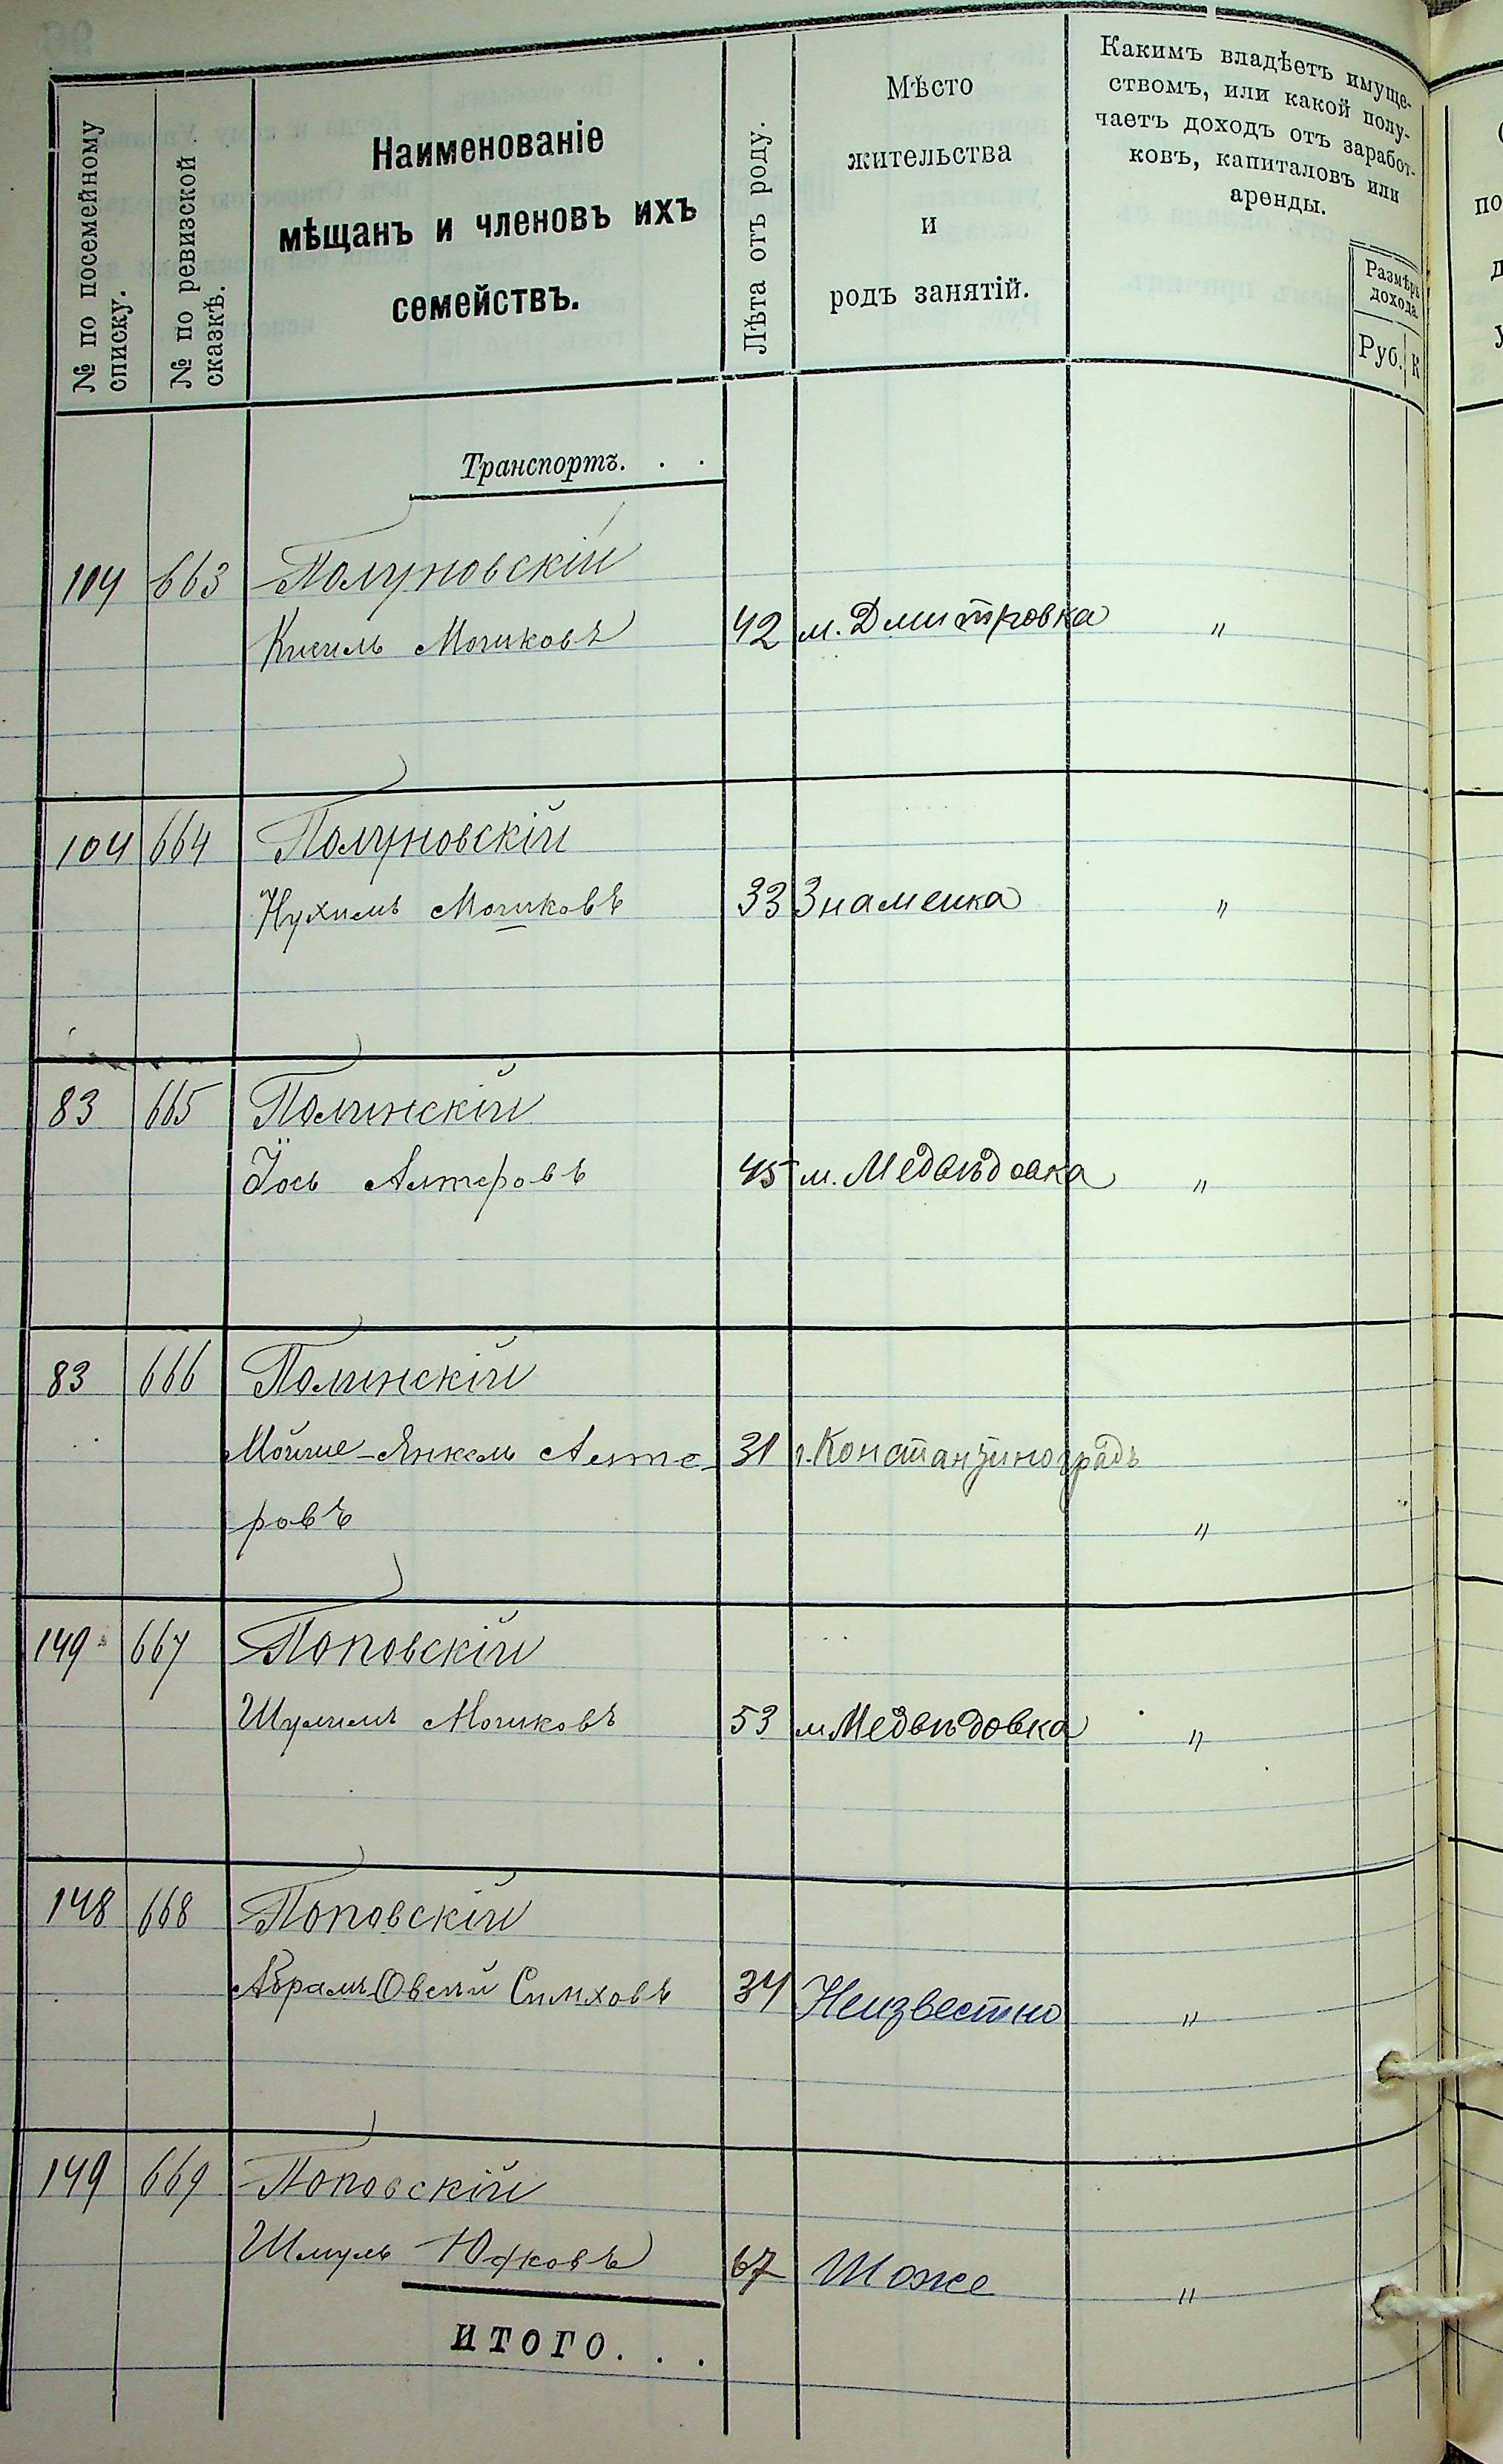 № по посемейному
списку.
№ по ревизской
сказкѣ.
Наименованіе
мѣщанъ и членовъ ихъ
семействъ.
Лѣта отъ роду.
Мѣсто
жительства
и
родъ занятій.
Какимъ владѣетъ имуще-
ствомъ, или какой полу-
чаетъ доходъ отъ заработ-
ковъ, капиталовъ или
аренды.
Размѣръ
дохода.
Руб. К
Транспортъ. . .
104 663 Полуновскій
Кисиль Мошковъ 42 м. Дмитровка "
104 664 Полуновскій
Нухимъ Мошковъ 33 Знаменка "
83 665 Полинскій
Іось Алтеровъ 45 м. Медвѣдовка "
83 666 Полинскій
Мойше-Янкель Алте- 31 г. Константиноградъ
ровъ "
149 667 Поповскій
Шулимъ Мошковъ 53 м Медвѣдовка "
148 668 Поповскій
Абрамъ Овсѣй Симховъ 34 Неизвестно "
149 669 Поповскій
Шмуль Юдковъ 67 Тоже "
ИТОГО. . .